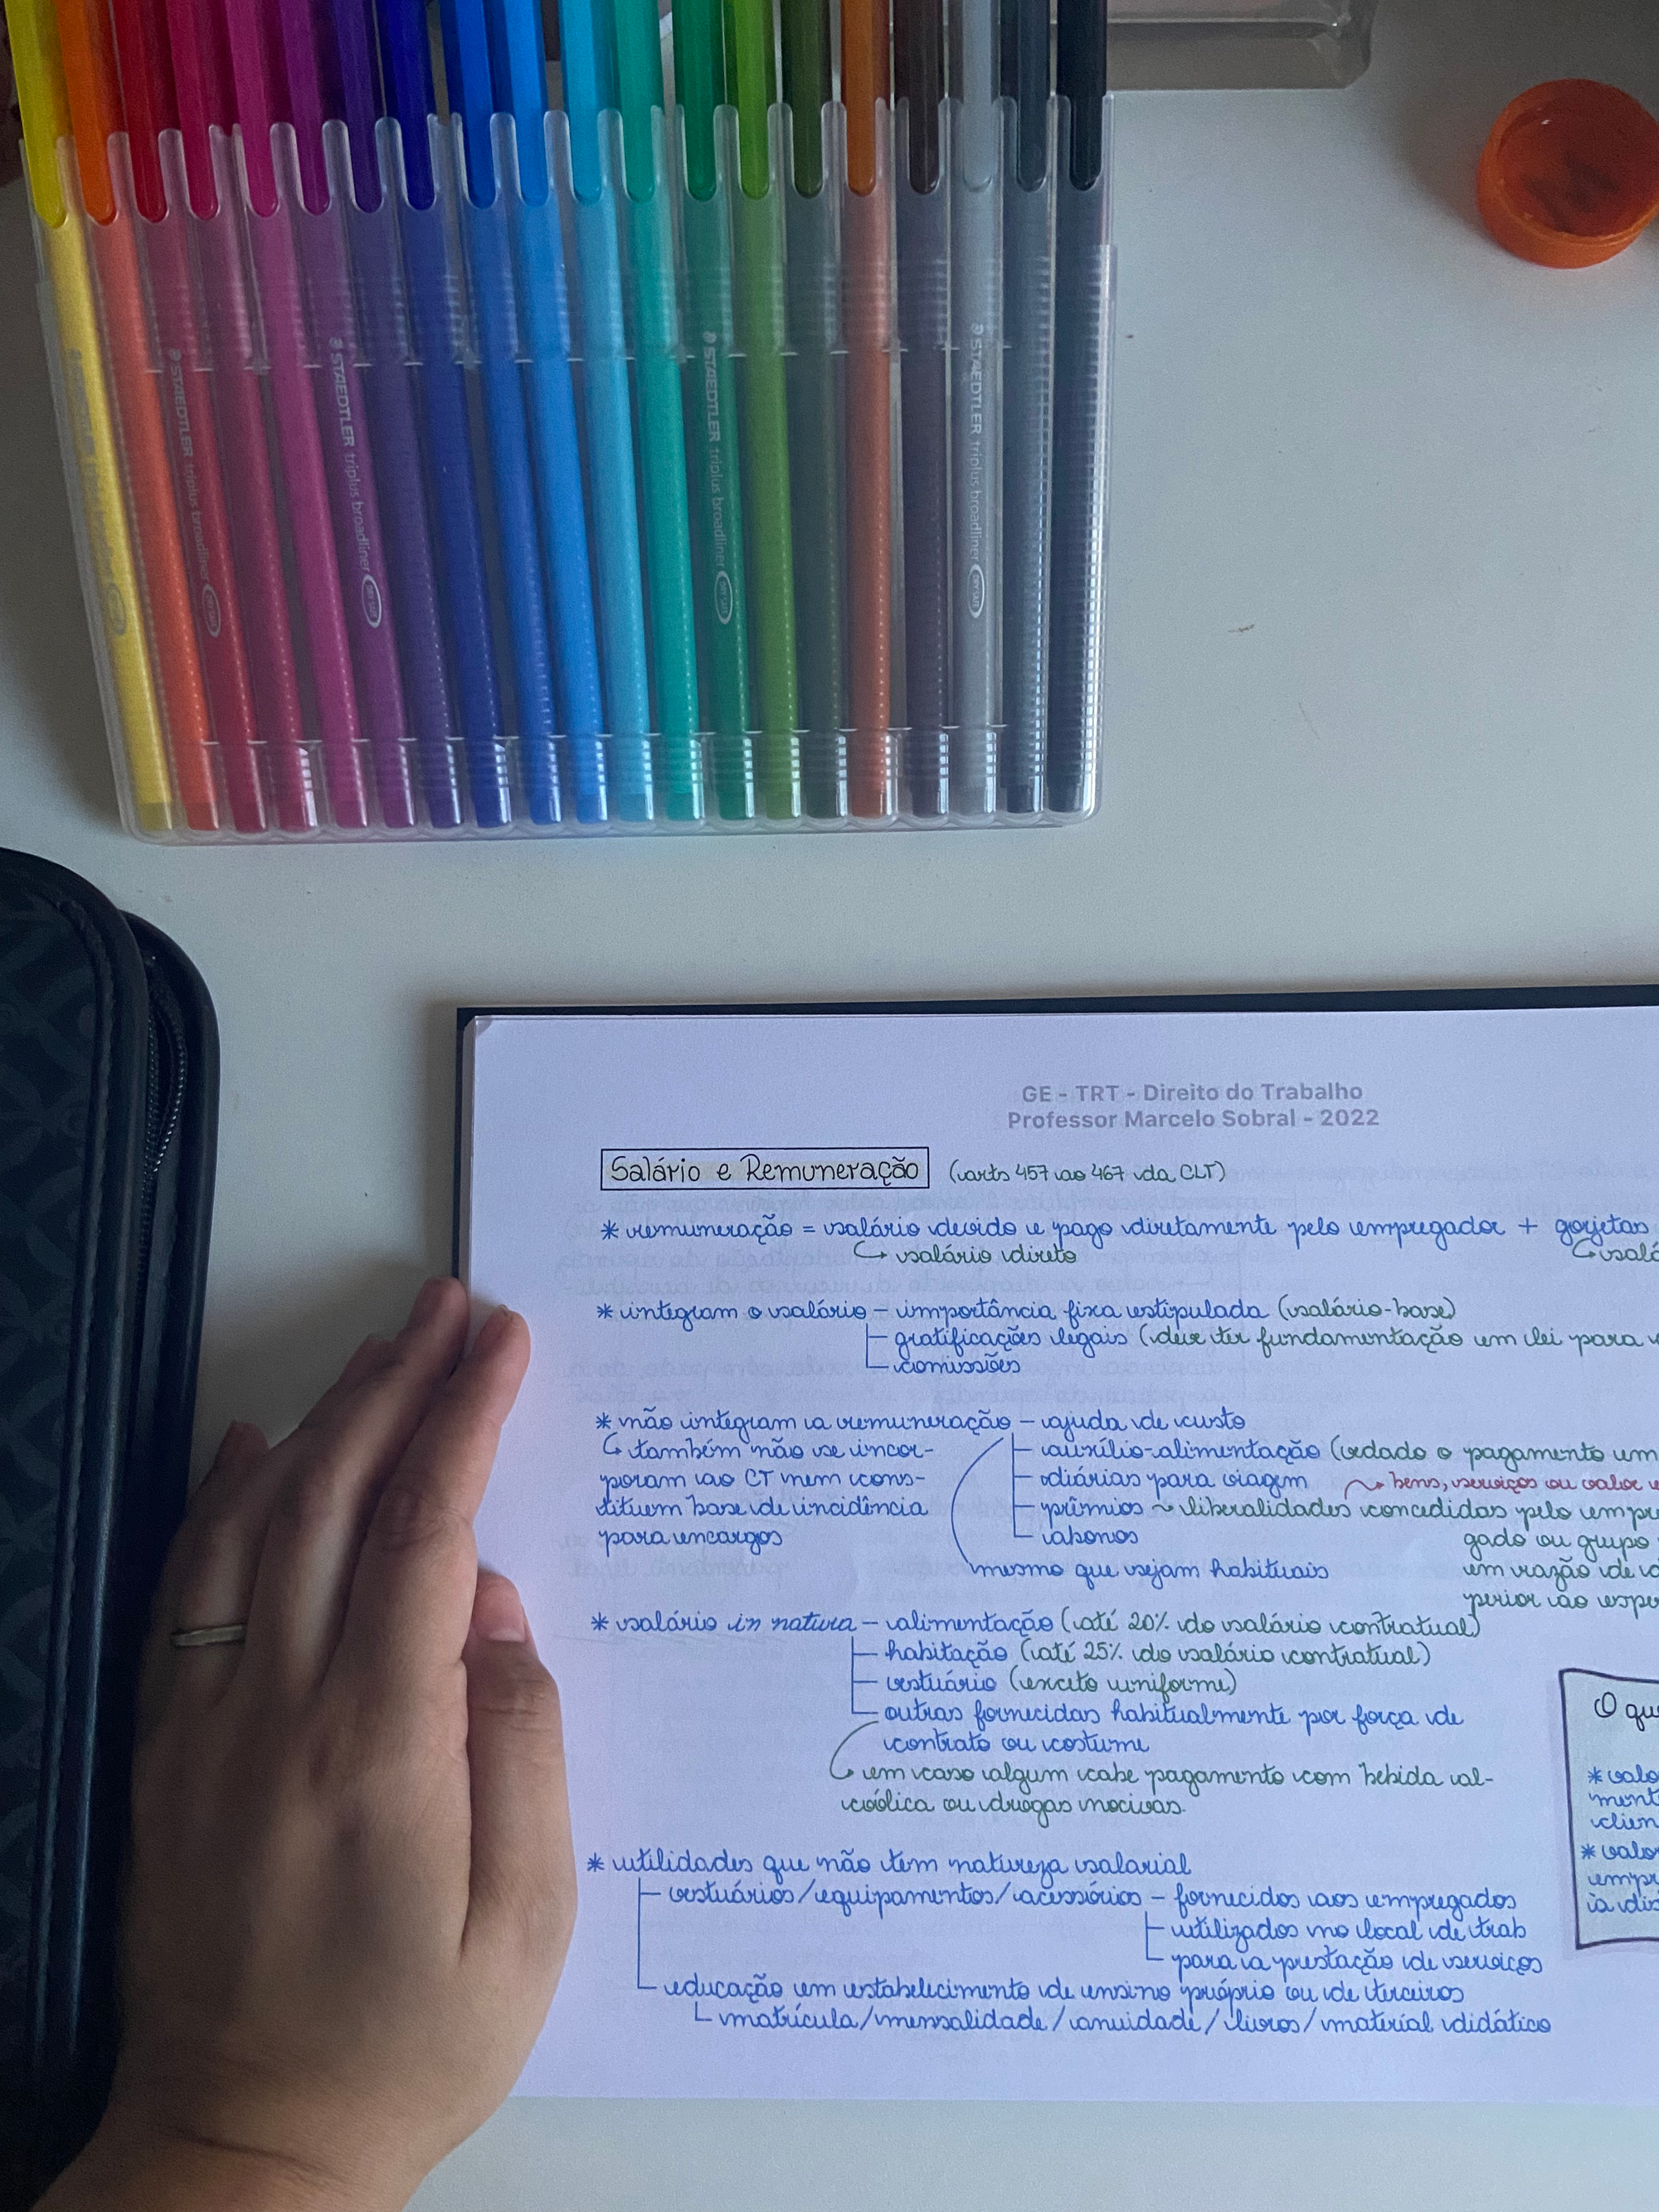 STAEDTLER triplus broadliner
STAEDTLER triplus broadliner DRY SAFE
STAEDTLER triplus broadliner DRY SAFE
STAEDTLER triplus broadliner DRY SAFE
GE - TRT - Direito do Trabalho
Professor Marcelo Sobral - 2022
Salário e Remuneração (arts 457 ao 467 da CLT)
* remuneração = salário devido e pago diretamente pelo empregador + gorjetas
↳ salário direto ↳ salá
* integram o salário – importância fixa estipulada (salário-base)
gratificações legais (deve ter fundamentação em lei para
comissões
* não integram a remuneração – ajuda de custo
↳ também não se incor- auxílio-alimentação (vedado o pagamento em
poram ao CT nem cons- diárias para viagem bens, serviços ou valor
tituem base de incidência prêmios ~ liberalidades concedidas pelo empre
para encargos abonos gado ou grupo
mesmo que sejam habituais em razão de
perior ao espe
* salário in natura – alimentação (até 20% do salário contratual)
habitação (até 25% do salário contratual)
vestuário (exceto uniforme)
outras fornecidas habitualmente por força de
contrato ou costume
↳ em caso algum cabe pagamento com bebida al-
coólica ou drogas nocivas.
O qu
* valo
ment
clien
* valo
empr
à dis
* utilidades que não tem natureza salarial
vestuários/equipamentos/acessórios – fornecidos aos empregados
utilizados no local de trab
para a prestação de serviços
educação em estabelecimento de ensino próprio ou de terceiros
matrícula/mensalidade/anuidade/livros/material didático